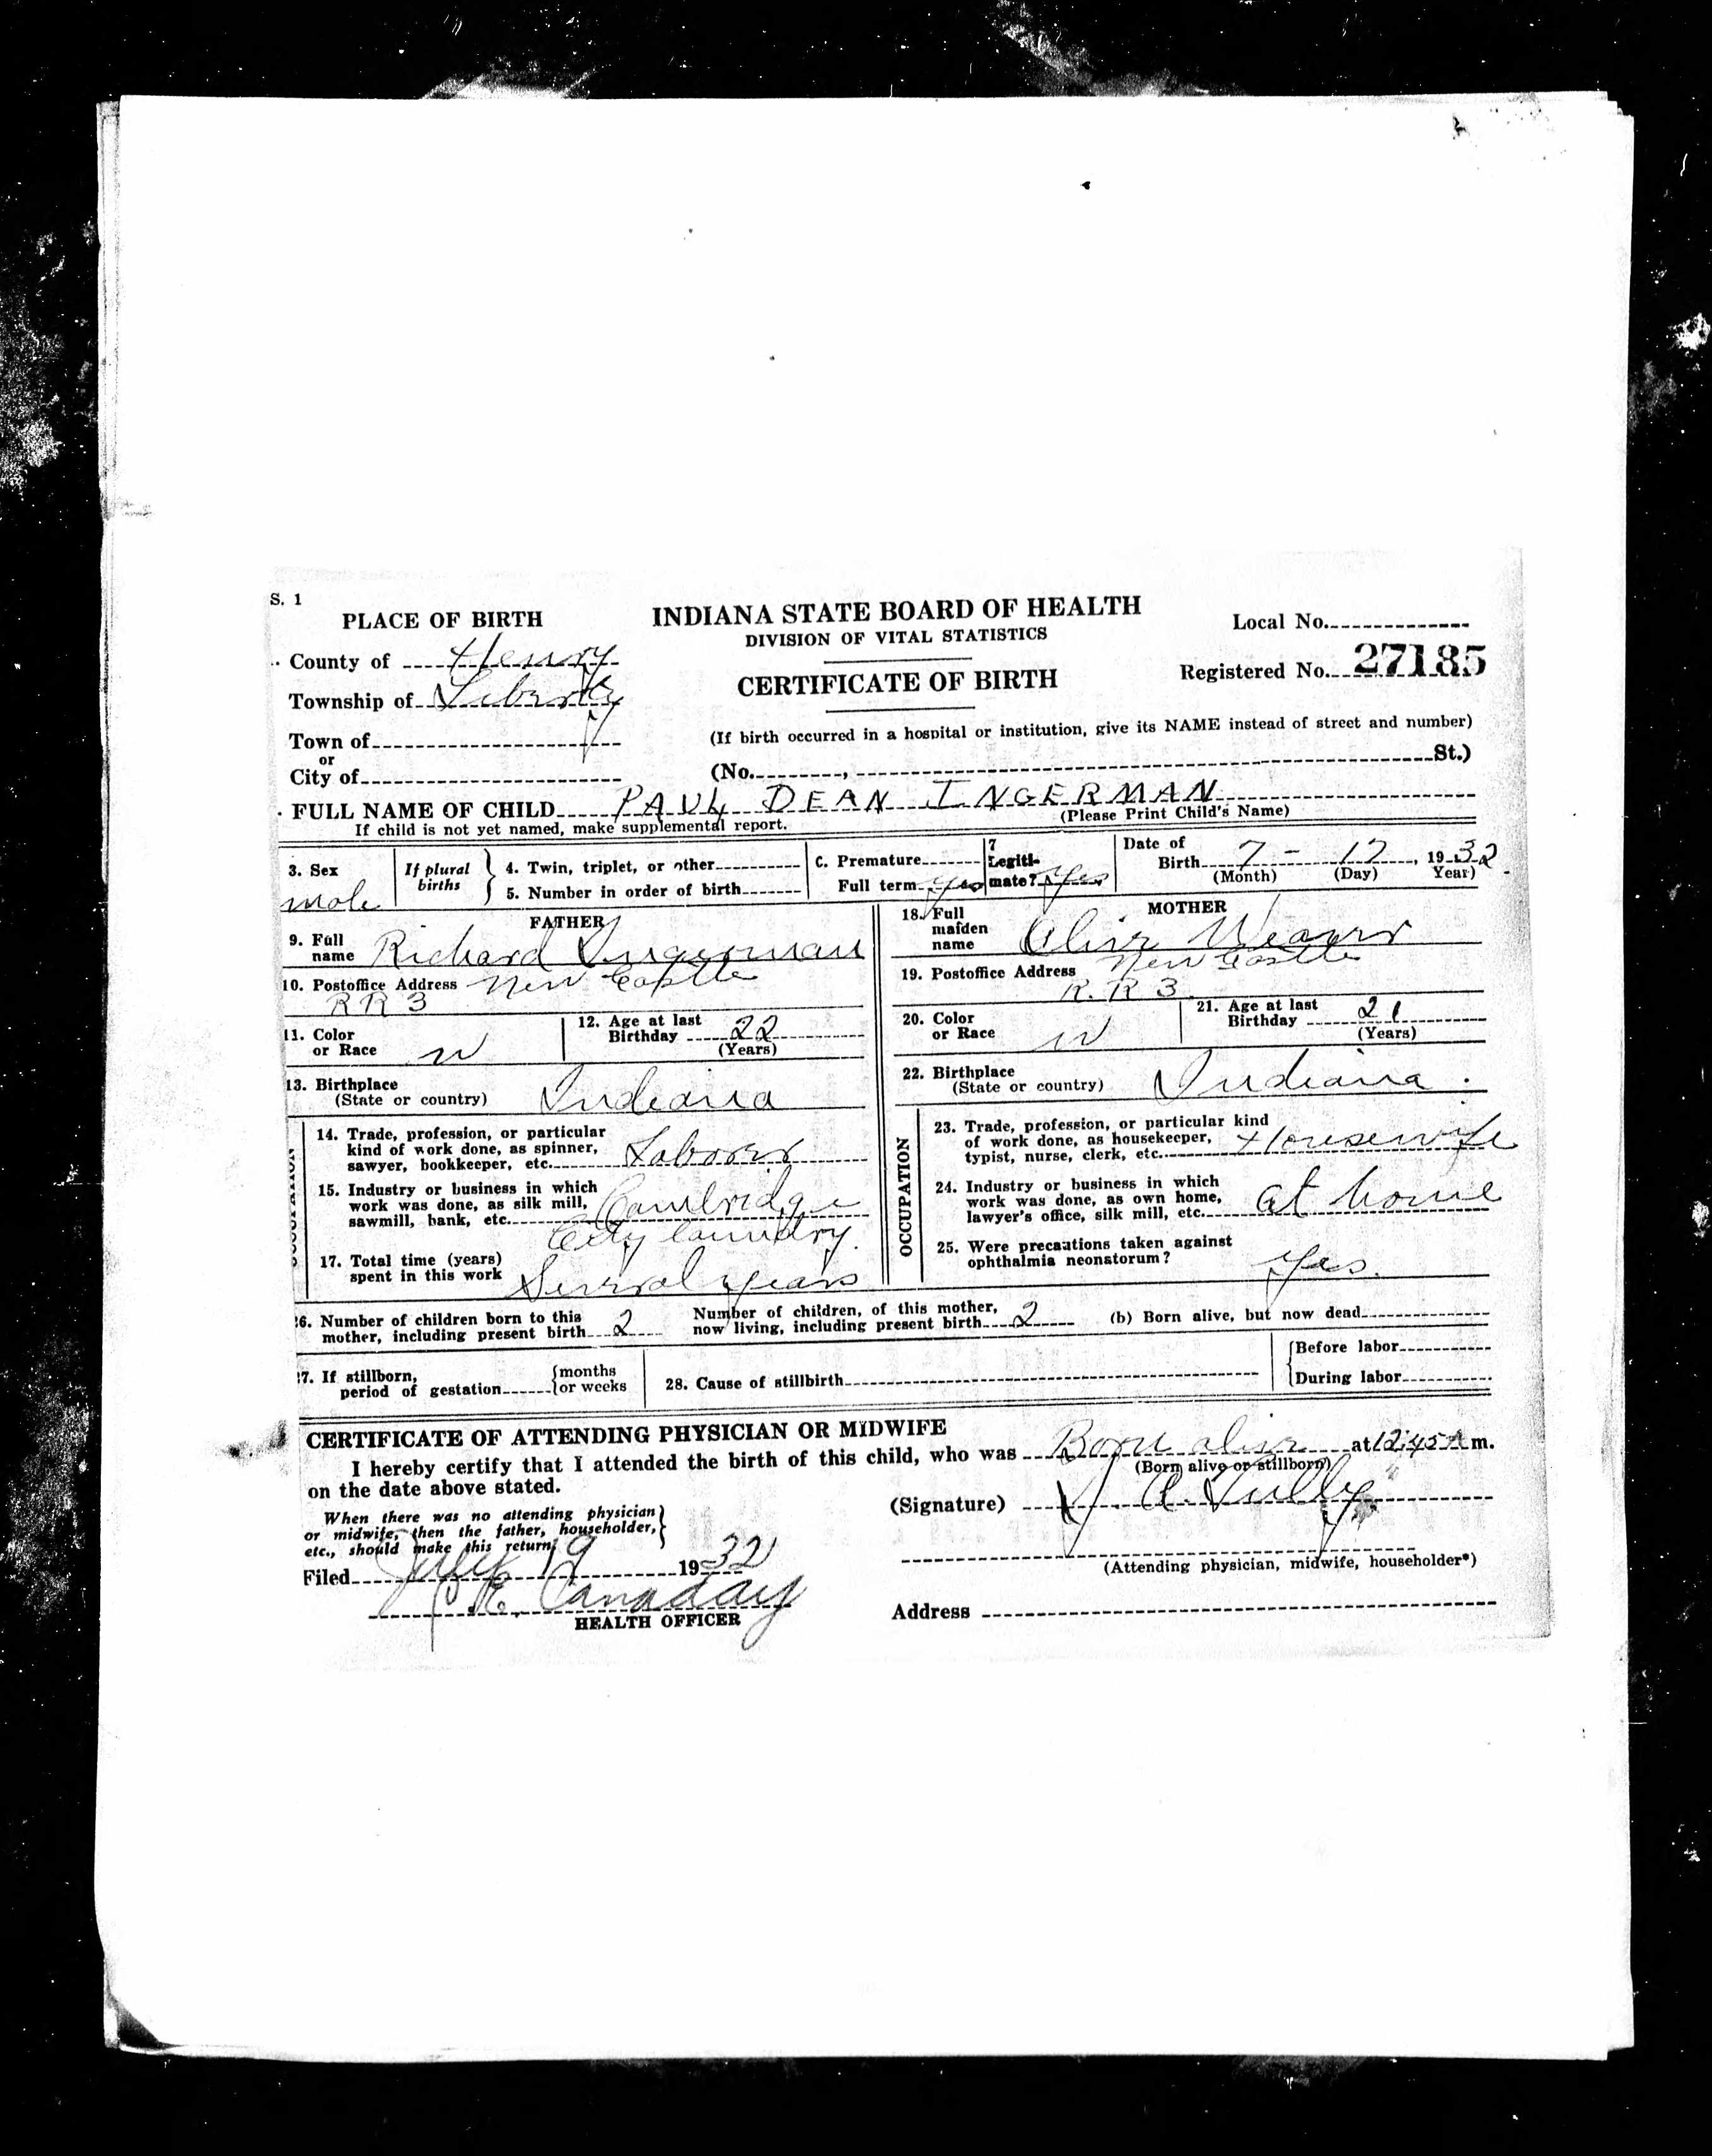 S. 1
PLACE OF BIRTH
INDIANA STATE BOARD OF HEALTH
DIVISION OF VITAL STATISTICS
Local No.
County of Henry
CERTIFICATE OF BIRTH
Registered No. 27185
Township of Liberty
Town of
or
City of
(If birth occurred in a hospital or institution, give its NAME instead of street and number)
(No. , St.)
FULL NAME OF CHILD PAUL DEAN INGERMAN
If child is not yet named, make supplemental report. (Please Print Child's Name)
3. Sex male
If plural births
4. Twin, triplet, or other
5. Number in order of birth
C. Premature
Full term yes
7 Legiti-
mate? yes
Date of
Birth 7 - 17, 1932
(Month) (Day) Year)
FATHER
9. Full
name Richard Ingerman
10. Postoffice Address New Castle
RR 3
11. Color
or Race W
12. Age at last
Birthday 22
(Years)
13. Birthplace
(State or country) Indiana
OCCUPATION
14. Trade, profession, or particular
kind of work done, as spinner,
sawyer, bookkeeper, etc. Laborer
15. Industry or business in which
work was done, as silk mill,
sawmill, bank, etc. Cambridge
City laundry.
17. Total time (years)
spent in this work Several years
MOTHER
18. Full
maiden
name Olive Weaver
19. Postoffice Address New Castle
R. R 3
20. Color
or Race W
21. Age at last
Birthday 21
(Years)
22. Birthplace
(State or country) Indiana.
OCCUPATION
23. Trade, profession, or particular kind
of work done, as housekeeper,
typist, nurse, clerk, etc. Housewife
24. Industry or business in which
work was done, as own home,
lawyer's office, silk mill, etc. at home
25. Were precautions taken against
ophthalmia neonatorum? Yes.
26. Number of children born to this
mother, including present birth 2
Number of children, of this mother,
now living, including present birth 2
(b) Born alive, but now dead
27. If stillborn,
period of gestation {months
or weeks
28. Cause of stillbirth
{Before labor
During labor
CERTIFICATE OF ATTENDING PHYSICIAN OR MIDWIFE
I hereby certify that I attended the birth of this child, who was Born alive at 12:45 A m.
(Born alive or stillborn)
on the date above stated.
When there was no attending physician
or midwife, then the father, householder,
etc., should make this return.
(Signature)
(Attending physician, midwife, householder*)
Filed July 19 1932
Canaday
HEALTH OFFICER
Address